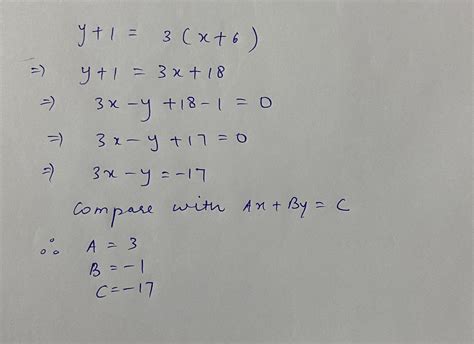 y+1 = 3(x+6)
⇒) y+1 = 3x+18
⇒) 3x-y+18-1=0
⇒) 3x-y+17=0
⇒) 3x-y=-17
Compare with Ax+By=C
∴ A = 3
B=-1
C=-17